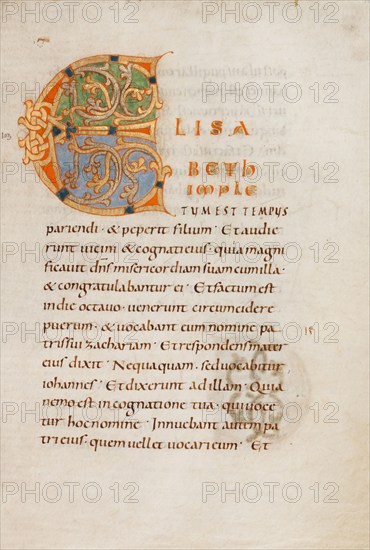 E
LISA
BETH
IMPLE
TUM EST TEMPUS
pariendi · & peperit filium · Et audie
runt uicini & cognati eius · quia magni
ficauit dñs misericordiam suam cum illa ·
& congratulabantur ei · Et factum est
in die octauo · uenerunt circumcidere
puerum · & uocabant eum nomine pa
tris sui zachariam · Et respondens mater
eius dixit · Nequaquam · sed uocabitur
iohannes · Et dixerunt ad illam · Quia
nemo est in cognatione tua · qui uoce
tur hoc nomine · Innuebant autem pa
tri eius · quem uellet uocari eum · Et
PHOTO 12